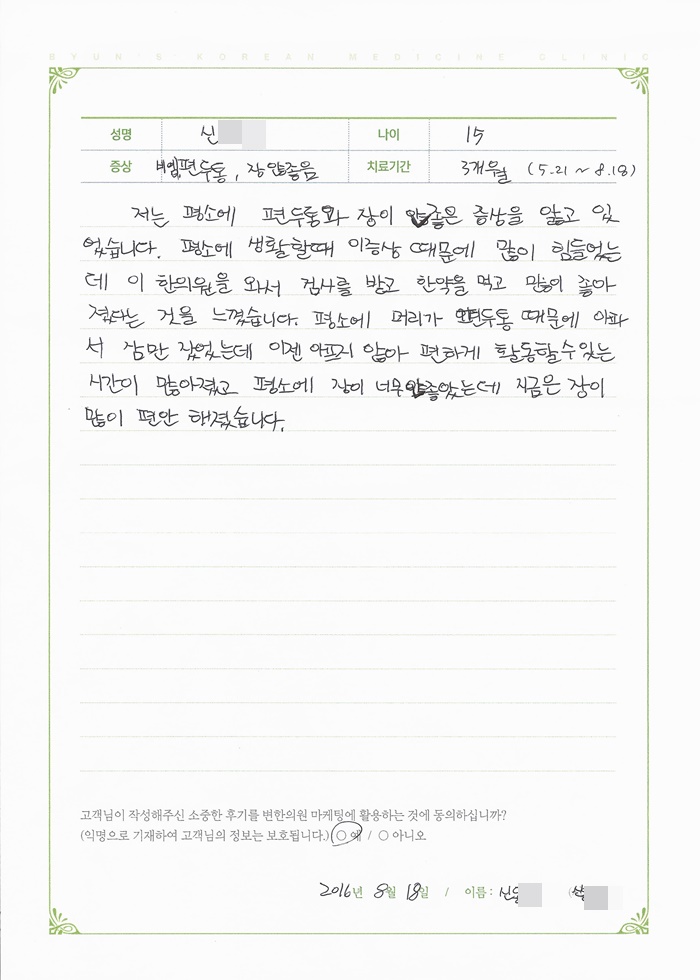 BYUN'S KOREAN MEDICINE CLINIC
성명 신 나이 15
증상 편두통, 장 안좋음 치료기간 3개월 (5.21 ~ 8.18)
저는 평소에 편두통과 장이 안좋은 증상을 앓고 있
었습니다. 평소에 생활할때 이증상 때문에 많이 힘들었는
데 이 한의원을 와서 검사를 받고 한약을 먹고 많이 좋아
졌다는 것을 느꼈습니다. 평소에 머리가 편두통 때문에 아파
서 잠만 잤었는데 이젠 아프지 않아 편하게 활동할수있는
시간이 많아졌고 평소에 장이 너무 안좋았는데 지금은 장이
많이 편안 해졌습니다.
고객님이 작성해주신 소중한 후기를 변한의원 마케팅에 활용하는 것에 동의하십니까?
(익명으로 기재하여 고객님의 정보는 보호됩니다.) ○ 예 / ○ 아니오
2016년 8월 18일 / 이름 : 신